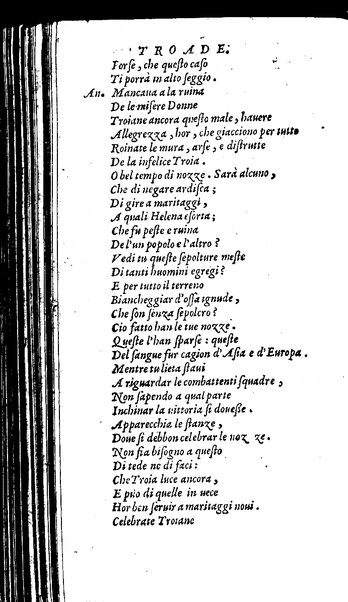 TROADE.
Forse, che questo caso
Ti porrà in alto seggio.
An. Mancaua a la ruina
De le misere Donne
Troiane ancora questo male, hauere
Allegrezza, hor, che giacciono per tutto
Roinate le mura, arse, e distrutte
De la infelice Troia.
O bel tempo di nozze. Sarà alcuno,
Che di negare ardisca;
Di gire a maritaggi,
A quali Helena esorta;
Che fu peste e ruina
De l'un popolo e l'altro?
Vedi tu queste sepolture meste
Di tanti huomini egregi?
E per tutto il terreno
Biancheggiar d'ossa ignude,
Che son senza sepolcro?
Cio fatto han le tue nozze.
Queste l'han sparse: queste
Del sangue fur cagion d'Asia e d'Europa.
Mentre tu lieta staui
A riguardar le combattenti squadre,
Non sapendo a qual parte
Inchinar la uittoria si douesse.
Apparecchia le stanze,
Doue si debbon celebrar le noz ze.
Non fia bisogno a questo
Di tede ne di faci:
Che Troia luce ancora,
E puo di quelle in uece
Hor ben seruir a maritaggi noui.
Celebrate Troiane